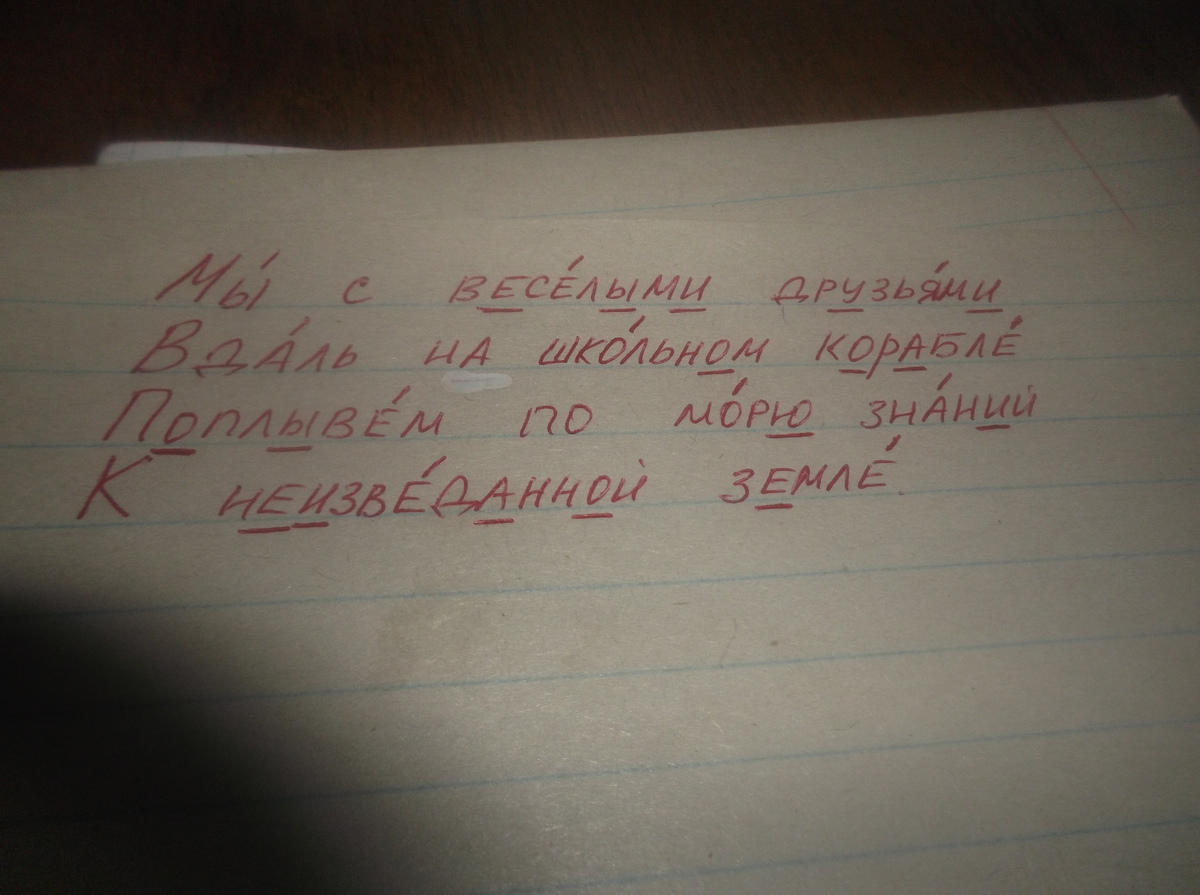 Мы́ с весе́лыми друзья́ми
Вда́ль на шко́льном корабле́
Поплыве́м по мо́рю зна́ний
К неизве́данной земле́.